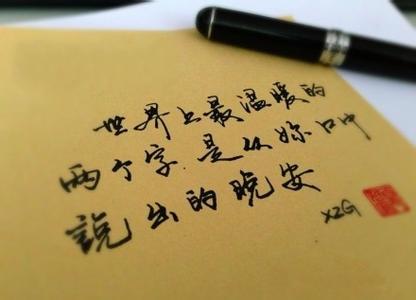 世界上最温暖的
两个字.是从妳口中
說出的晚安
XZG